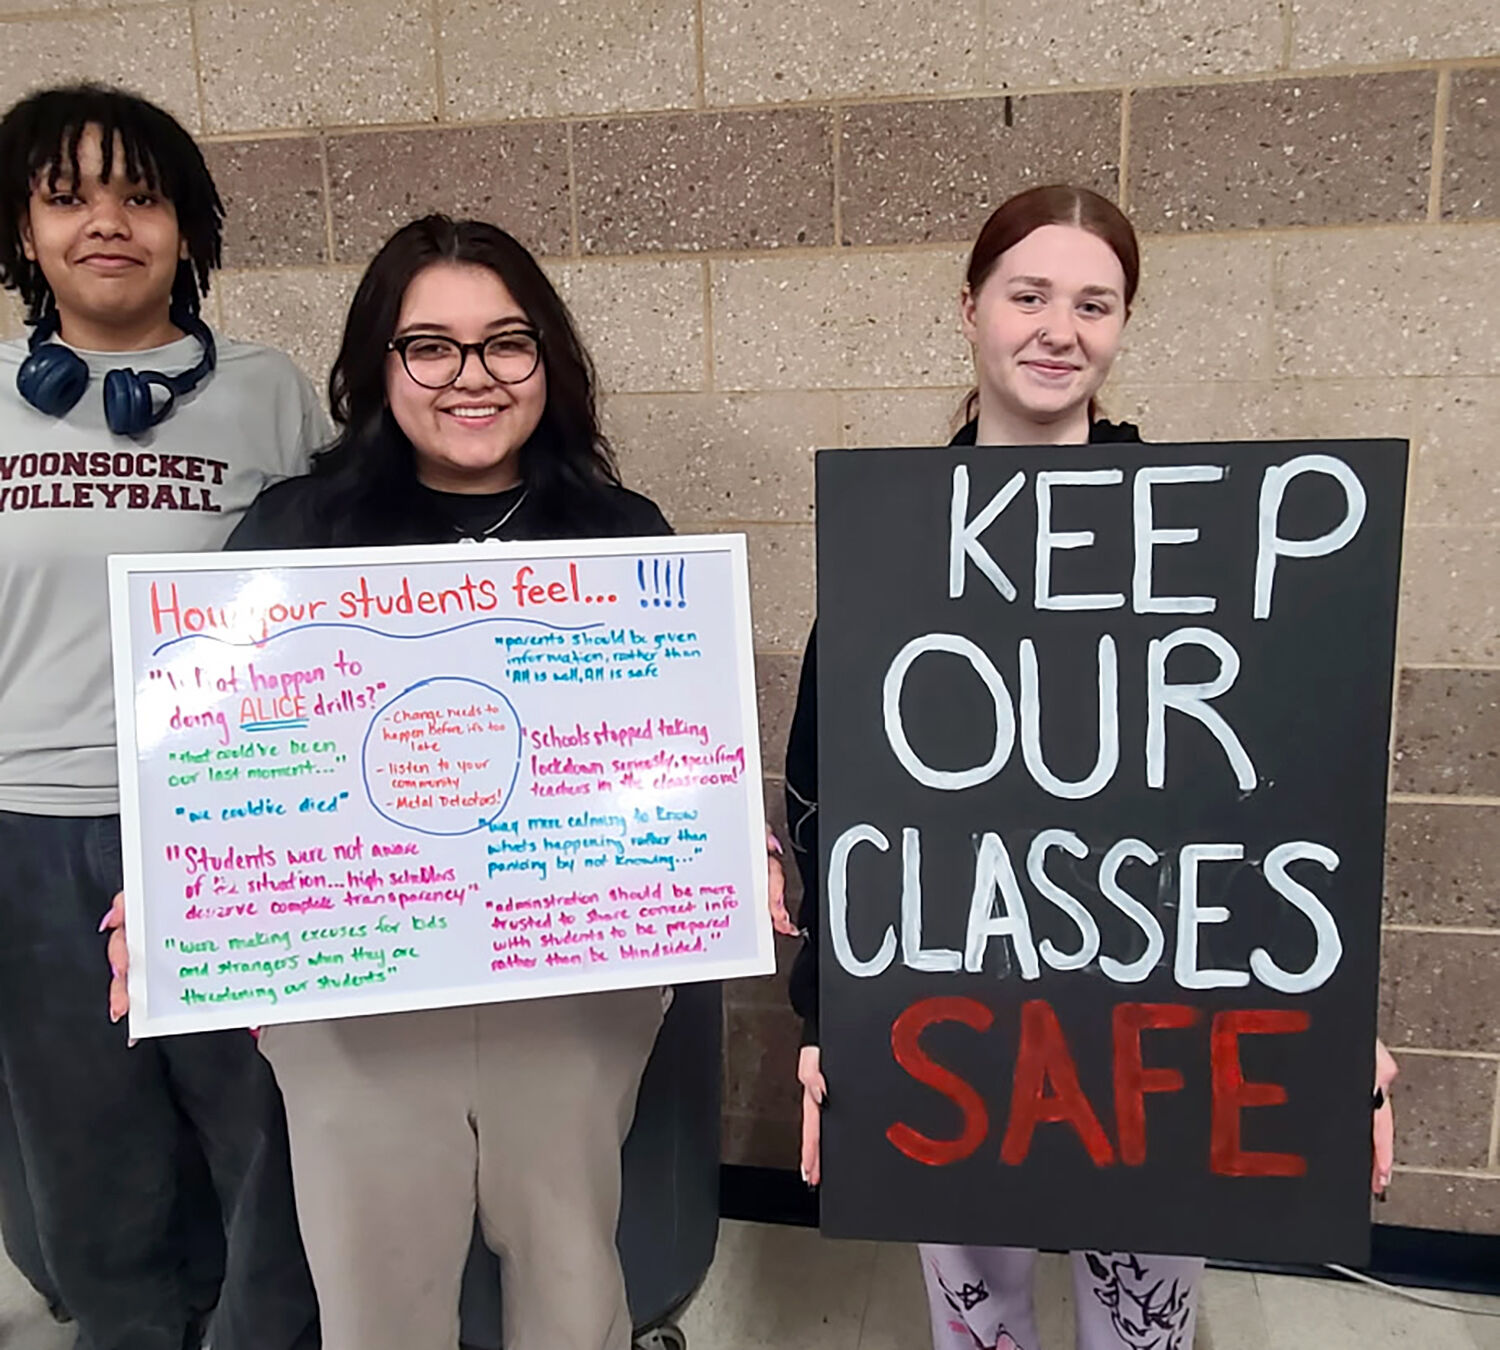 WOONSOCKET
VOLLEYBALL
How your students feel... !!!!
"What happen to
doing ALICE drills?"
"that could've been
our last moment..."
"we could've died"
"Students were not aware
of situation...high schoolers
deserve complete transparency"
"were making excuses for kids
and strangers when they are
threatening our students"
- Change needs to
happen before it's too
late
- listen to your
community
- Metal Detectors!
"parents should be given
information, rather than
'All is well, All is safe
"Schools stopped taking
lockdown seriously, specifing
teachers in the classroom!
"way more calming to know
what's happening rather than
panicing by not knowing..."
"adminstration should be more
trusted to share correct info
with students to be prepared
rather than be blindsided."
KEEP
OUR
CLASSES
SAFE